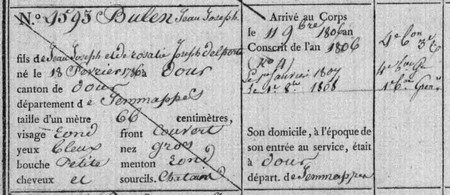 N.º 9595 Bulen Jean Joseph
fils de Jean Joseph et de rosalie Joseph delporte
né le 18 Fevrier à Dour
canton de Dour
département de Jemmappes
taille d'un mètre 66 centimètres,
visage rond front Couvert
yeux bleux nez gros
bouche Petite menton rond
cheveux et sourcils. Chatain
Arrivé au Corps
le 11 9bre 1806
Conscrit de l'an 1806
Janvier 1807
1808
Son domicile, à l'époque de
son entrée au service, était
à Dour
départ. de Jemmappes
4e Bon 3e Cie